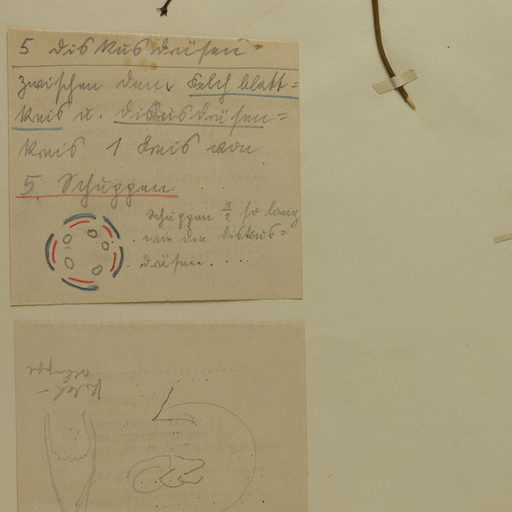 5 Diskusdrüsen
zwischen dem Kelchblatt=
kreis u. Diskusdrüsen=
kreis 1 Kreis von
5 Schuppen
Schuppen 1/2 so lang
wie die Diskus=
drüsen.
Kelch-